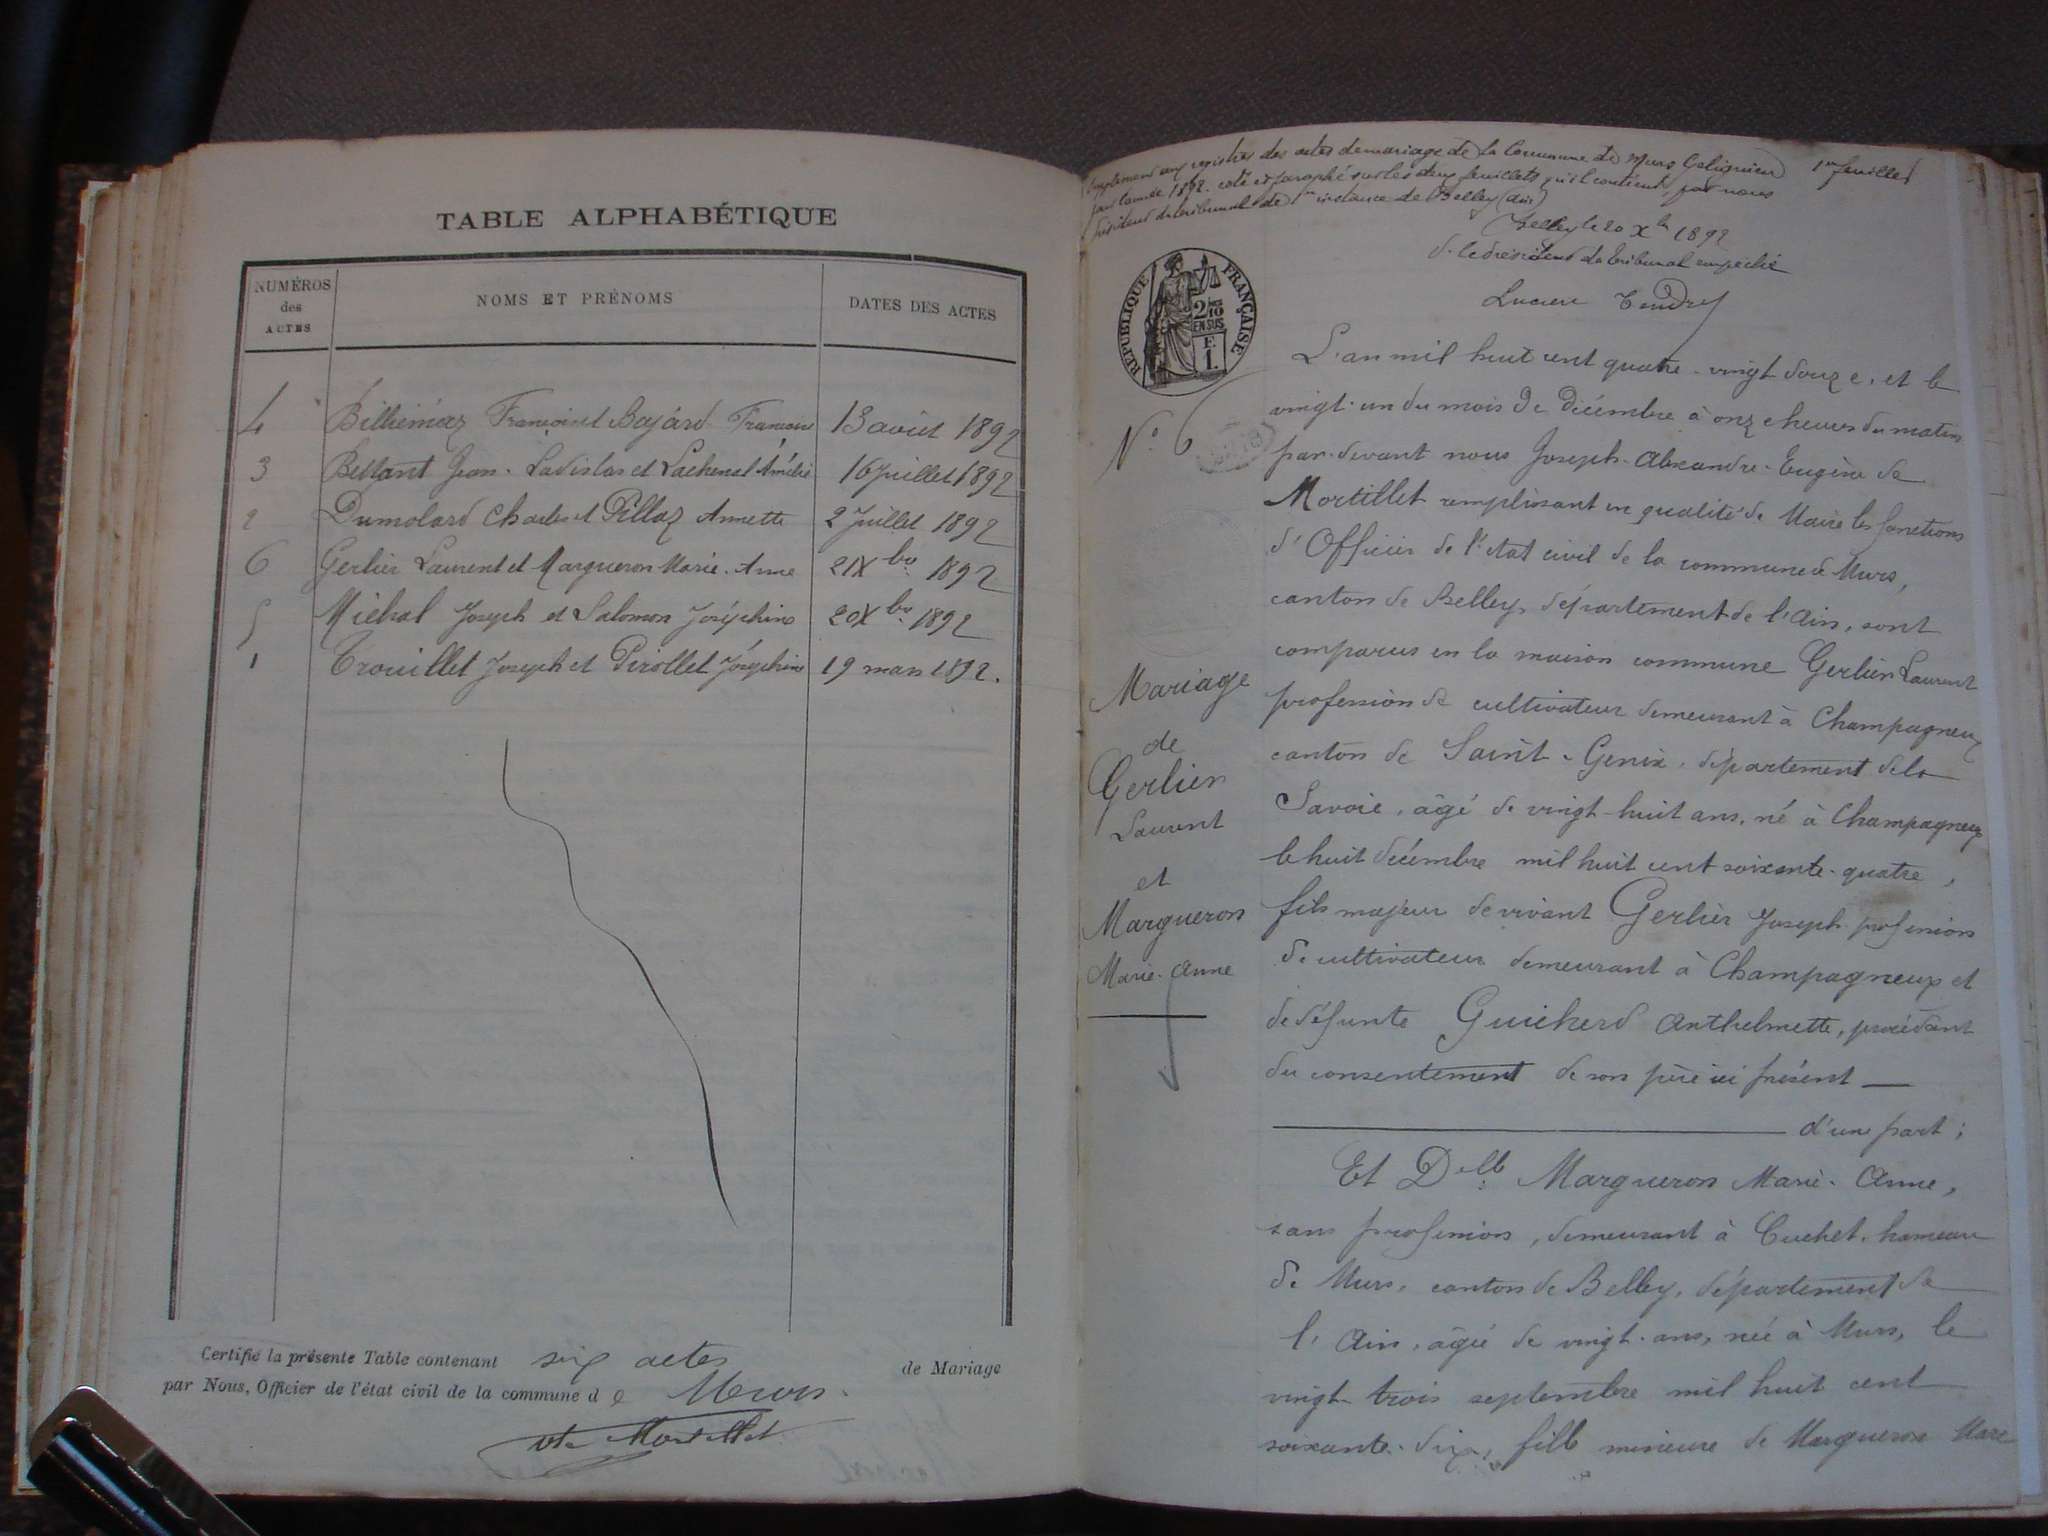 TABLE ALPHABÉTIQUE
NUMÉROS des ACTES
NOMS ET PRÉNOMS
DATES DES ACTES
4 Billiémaz François et Bajard Françoise 13 août 1892
3 Bellant Jean-Ladislas et Lachenal Amélie 16 juillet 1892
2 Dumolard Charles et Pillaz Annette 2 Juillet 1892
6 Gerlier Laurent et Margueron Marie-Anne 21 Xbre 1892
5 Michal Joseph et Salomon Joséphine 20 Xbre 1892
1 Trouillet Joseph et Pirollet Joséphine 19 mars 1892.
Certifié la présente Table contenant six actes de Mariage
par Nous, Officier de l'état civil de la commune de Murs.
Mortillet
Supplément aux registres des actes de mariage de la Commune de Murs Gelignieux 1er feuillet
pour l'année 1892. coté et paraphé sur les deux feuillets qu'il contient par nous
Président du tribunal de 1ere instance de Belley (Ain)
Belley le 20 Xbre 1892
p. le Président du tribunal empêché
Lucien Tendret
RÉPUBLIQUE FRANÇAISE
2/10 EN SUS
F. 1.
No 6
Mariage
de
Gerlier
Laurent
et
Margueron
Marie-Anne
L'an mil huit cent quatre-vingt douze, et le
vingt-un du mois de décembre à onze heures du matin
par-devant nous Joseph-Alexandre-Eugène de
Mortillet remplissant en qualité de Maire les fonctions
d'Officier de l'état civil de la commune de Murs,
canton de Belley, département de l'Ain, sont
comparus en la maison commune Gerlier Laurent
profession de cultivateur demeurant à Champagneux
canton de Saint-Genix, département de la
Savoie, âgé de vingt-huit ans, né à Champagneux
le huit décembre mil huit cent soixante-quatre,
fils majeur de vivant Gerlier Joseph profession
de cultivateur demeurant à Champagneux et
de défunte Guicherd Anthelmette, procédant
du consentement de son père ici présent
d'une part;
Et Delle Margueron Marie-Anne,
sans profession, demeurant à Cuchet, hameau
de Murs, canton de Belley, département de
l'Ain, âgée de vingt-ans, née à Murs, le
vingt-trois septembre mil huit cent
soixante-dix, fille mineure de Margueron Marc